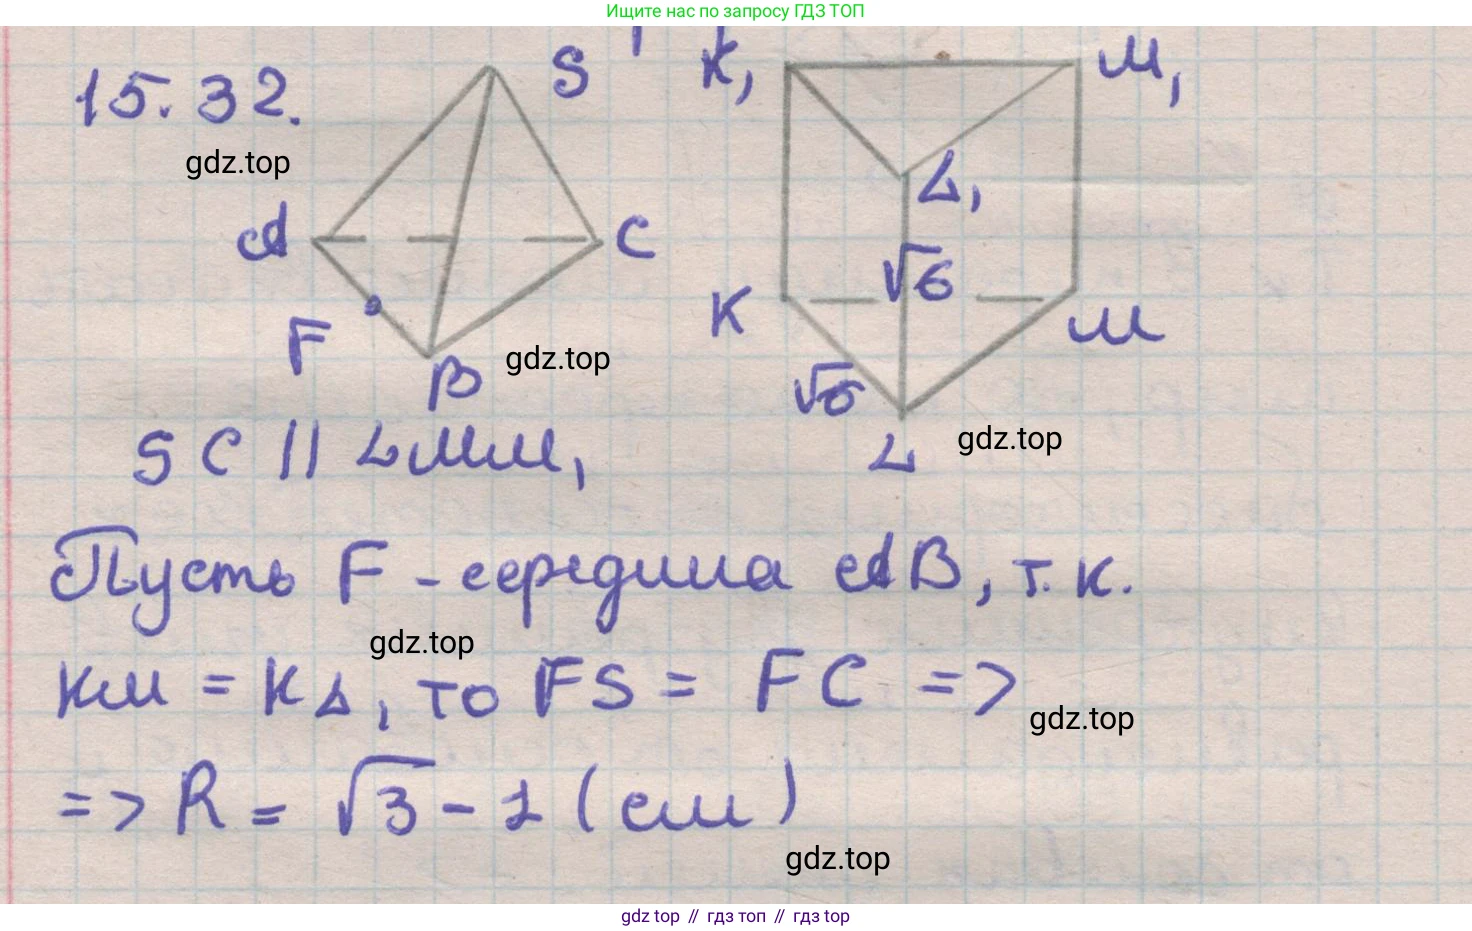 Ищите нас по запросу ГДЗ ТОП
15.32.
S K₁ M₁
gdz.top
L₁
A C
√6
K M
F
B gdz.top
√6
L gdz.top
SC || LMM₁
Пусть F - середина AB, т.к.
gdz.top
KM = KL, то FS = FC =>
gdz.top
=> R = √3 - 1 (см)
gdz.top
gdz top // гдз топ // гдз top